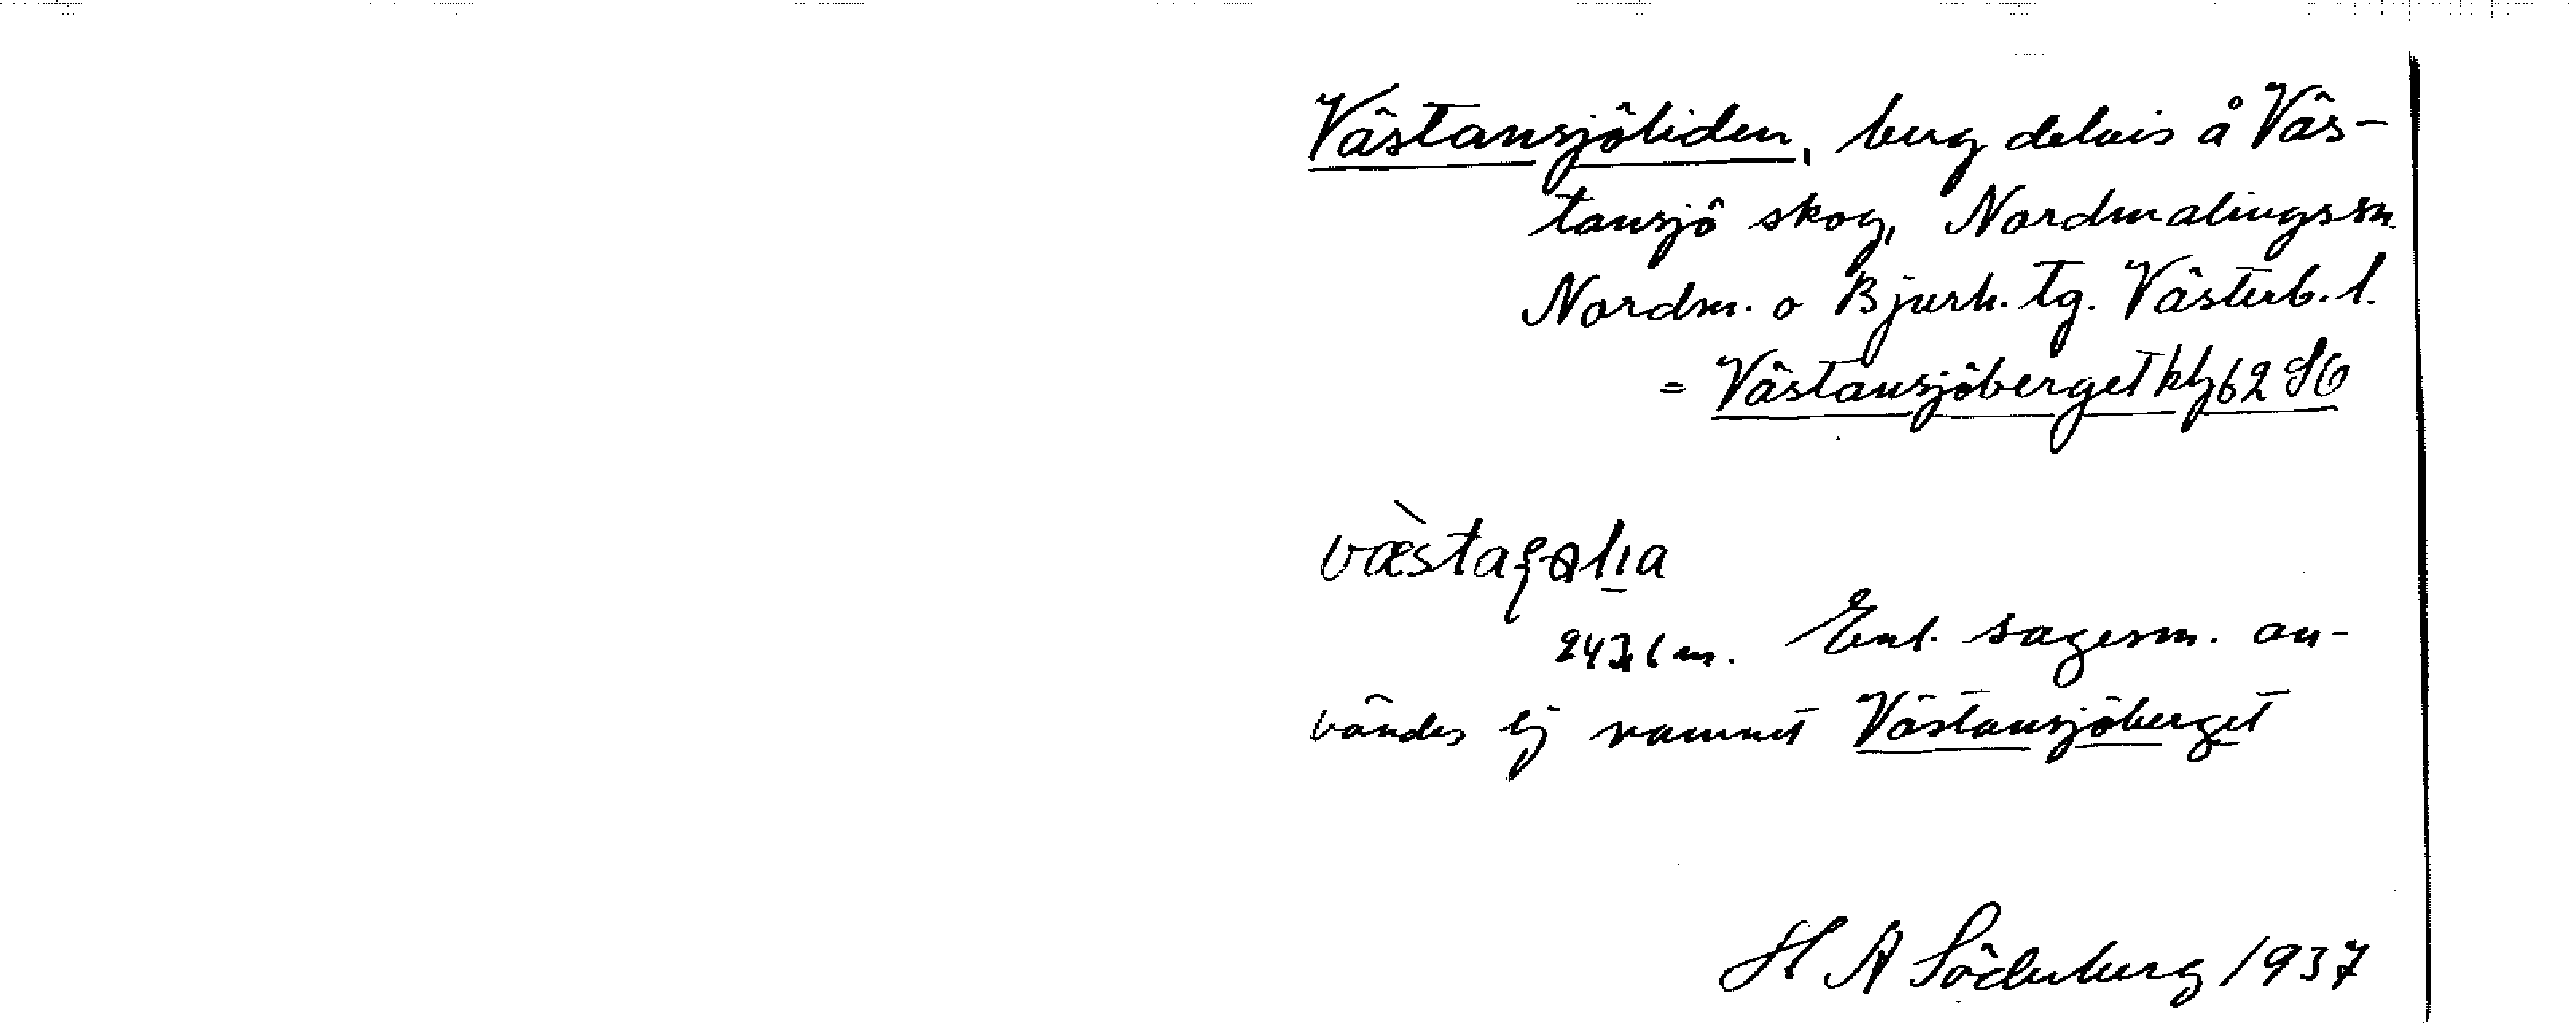 Västansjöliden, berg delvis å Väs-
tansjö skog, Nordmalings sn.
Nordm. o Bjurh. tg. Västerb. l.
= Västansjöberget kbl 62 SO
Enl. sagesm. an-
vändes ej namnet Västansjöberget
H A Söderberg 1937